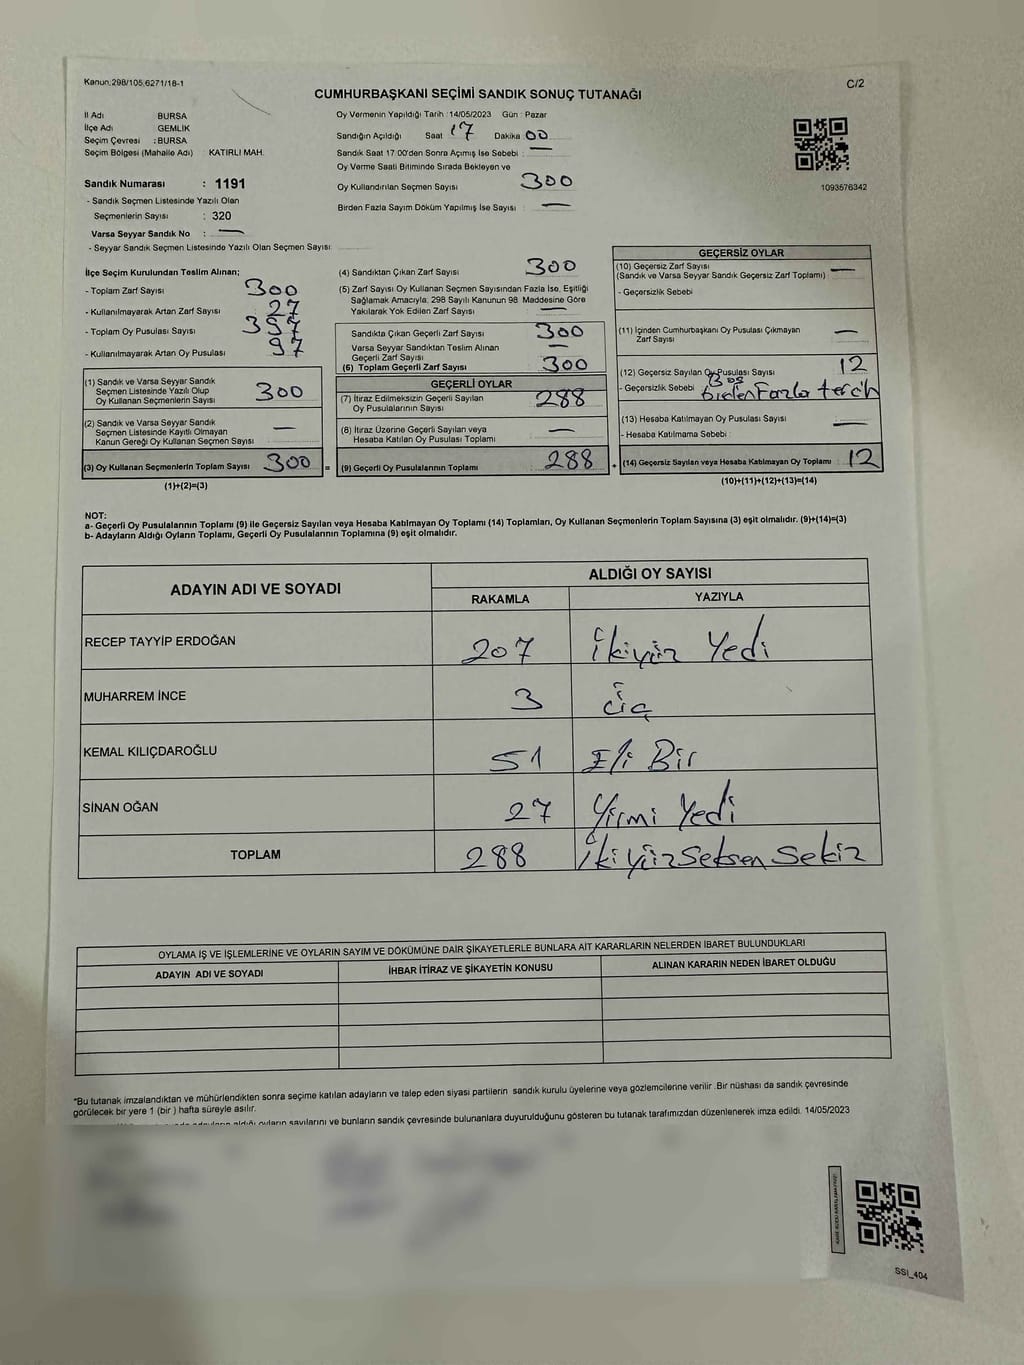 Kanun:298/105,6271/18-1
C/2
CUMHURBAŞKANI SEÇİMİ SANDIK SONUÇ TUTANAĞI
İl Adı BURSA
İlçe Adı GEMLİK
Seçim Çevresi : BURSA
Seçim Bölgesi (Mahalle Adı) KATIRLI MAH.
Sandık Numarası : 1191
- Sandık Seçmen Listesinde Yazılı Olan
Seçmenlerin Sayısı : 320
Varsa Seyyar Sandık No : —
- Seyyar Sandık Seçmen Listesinde Yazılı Olan Seçmen Sayısı:
Oy Vermenin Yapıldığı Tarih : 14/05/2023 Gün : Pazar
Sandığın Açıldığı Saat 17 Dakika 00
Sandık Saat 17:00'den Sonra Açımış İse Sebebi : —
Oy Verme Saati Bitiminde Sırada Bekleyen ve
Oy Kullandırılan Seçmen Sayısı 300
Birden Fazla Sayım Döküm Yapılmış İse Sayısı : —
1093576342
İlçe Seçim Kurulundan Teslim Alınan;
- Toplam Zarf Sayısı 300
- Kullanılmayarak Artan Zarf Sayısı 27
- Toplam Oy Pusulası Sayısı 397
- Kullanılmayarak Artan Oy Pusulası 97
(1) Sandık ve Varsa Seyyar Sandık
Seçmen Listesinde Yazılı Olup
Oy Kullanan Seçmenlerin Sayısı 300
(2) Sandık ve Varsa Seyyar Sandık
Seçmen Listesinde Kayıtlı Olmayan
Kanun Gereği Oy Kullanan Seçmen Sayısı —
(3) Oy Kullanan Seçmenlerin Toplam Sayısı 300 =
(1)+(2)=(3)
(4) Sandıktan Çıkan Zarf Sayısı 300
(5) Zarf Sayısı Oy Kullanan Seçmen Sayısından Fazla İse, Eşitliği
Sağlamak Amacıyla, 298 Sayılı Kanunun 98. Maddesine Göre
Yakılarak Yok Edilen Zarf Sayısı —
Sandıkta Çıkan Geçerli Zarf Sayısı 300
Varsa Seyyar Sandıktan Teslim Alınan
Geçerli Zarf Sayısı —
(6) Toplam Geçerli Zarf Sayısı 300
GEÇERLİ OYLAR
(7) İtiraz Edilmeksizin Geçerli Sayılan
Oy Pusulalarının Sayısı 288
(8) İtiraz Üzerine Geçerli Sayılan veya
Hesaba Katılan Oy Pusulası Toplamı —
(9) Geçerli Oy Pusulalarının Toplamı 288 +
GEÇERSİZ OYLAR
(10) Geçersiz Zarf Sayısı
(Sandık ve Varsa Seyyar Sandık Geçersiz Zarf Toplamı) —
- Geçersizlik Sebebi
(11) İçinden Cumhurbaşkanı Oy Pusulası Çıkmayan
Zarf Sayısı —
(12) Geçersiz Sayılan Oy Pusulası Sayısı 12
- Geçersizlik Sebebi Boş
birden Fazla tercih
(13) Hesaba Katılmayan Oy Pusulası Sayısı —
- Hesaba Katılmama Sebebi :
(14) Geçersiz Sayılan veya Hesaba Katılmayan Oy Toplamı 12
(10)+(11)+(12)+(13)=(14)
NOT:
a- Geçerli Oy Pusulalarının Toplamı (9) ile Geçersiz Sayılan veya Hesaba Katılmayan Oy Toplamı (14) Toplamları, Oy Kullanan Seçmenlerin Toplam Sayısına (3) eşit olmalıdır. (9)+(14)=(3)
b- Adayların Aldığı Oyların Toplamı, Geçerli Oy Pusulalarının Toplamına (9) eşit olmalıdır.
ADAYIN ADI VE SOYADI
ALDIĞI OY SAYISI
RAKAMLA YAZIYLA
RECEP TAYYİP ERDOĞAN 207 İkiyüz Yedi
MUHARREM İNCE 3 üç
KEMAL KILIÇDAROĞLU 51 Eli Bir
SİNAN OĞAN 27 Yirmi Yedi
TOPLAM 288 İkiyüzSeksen Sekiz
OYLAMA İŞ VE İŞLEMLERİNE VE OYLARIN SAYIM VE DÖKÜMÜNE DAİR ŞİKAYETLERLE BUNLARA AİT KARARLARIN NELERDEN İBARET BULUNDUKLARI
ADAYIN ADI VE SOYADI İHBAR İTİRAZ VE ŞİKAYETİN KONUSU ALINAN KARARIN NEDEN İBARET OLDUĞU
*Bu tutanak imzalandıktan ve mühürlendikten sonra seçime katılan adayların ve talep eden siyasi partilerin sandık kurulu üyelerine veya gözlemcilerine verilir .Bir nüshası da sandık çevresinde
görülecek bir yere 1 (bir ) hafta süreyle asılır.
aldığı oyların sayılarını ve bunların sandık çevresinde bulunanlara duyurulduğunu gösteren bu tutanak tarafımızdan düzenlenerek imza edildi. 14/05/2023
SSI_404